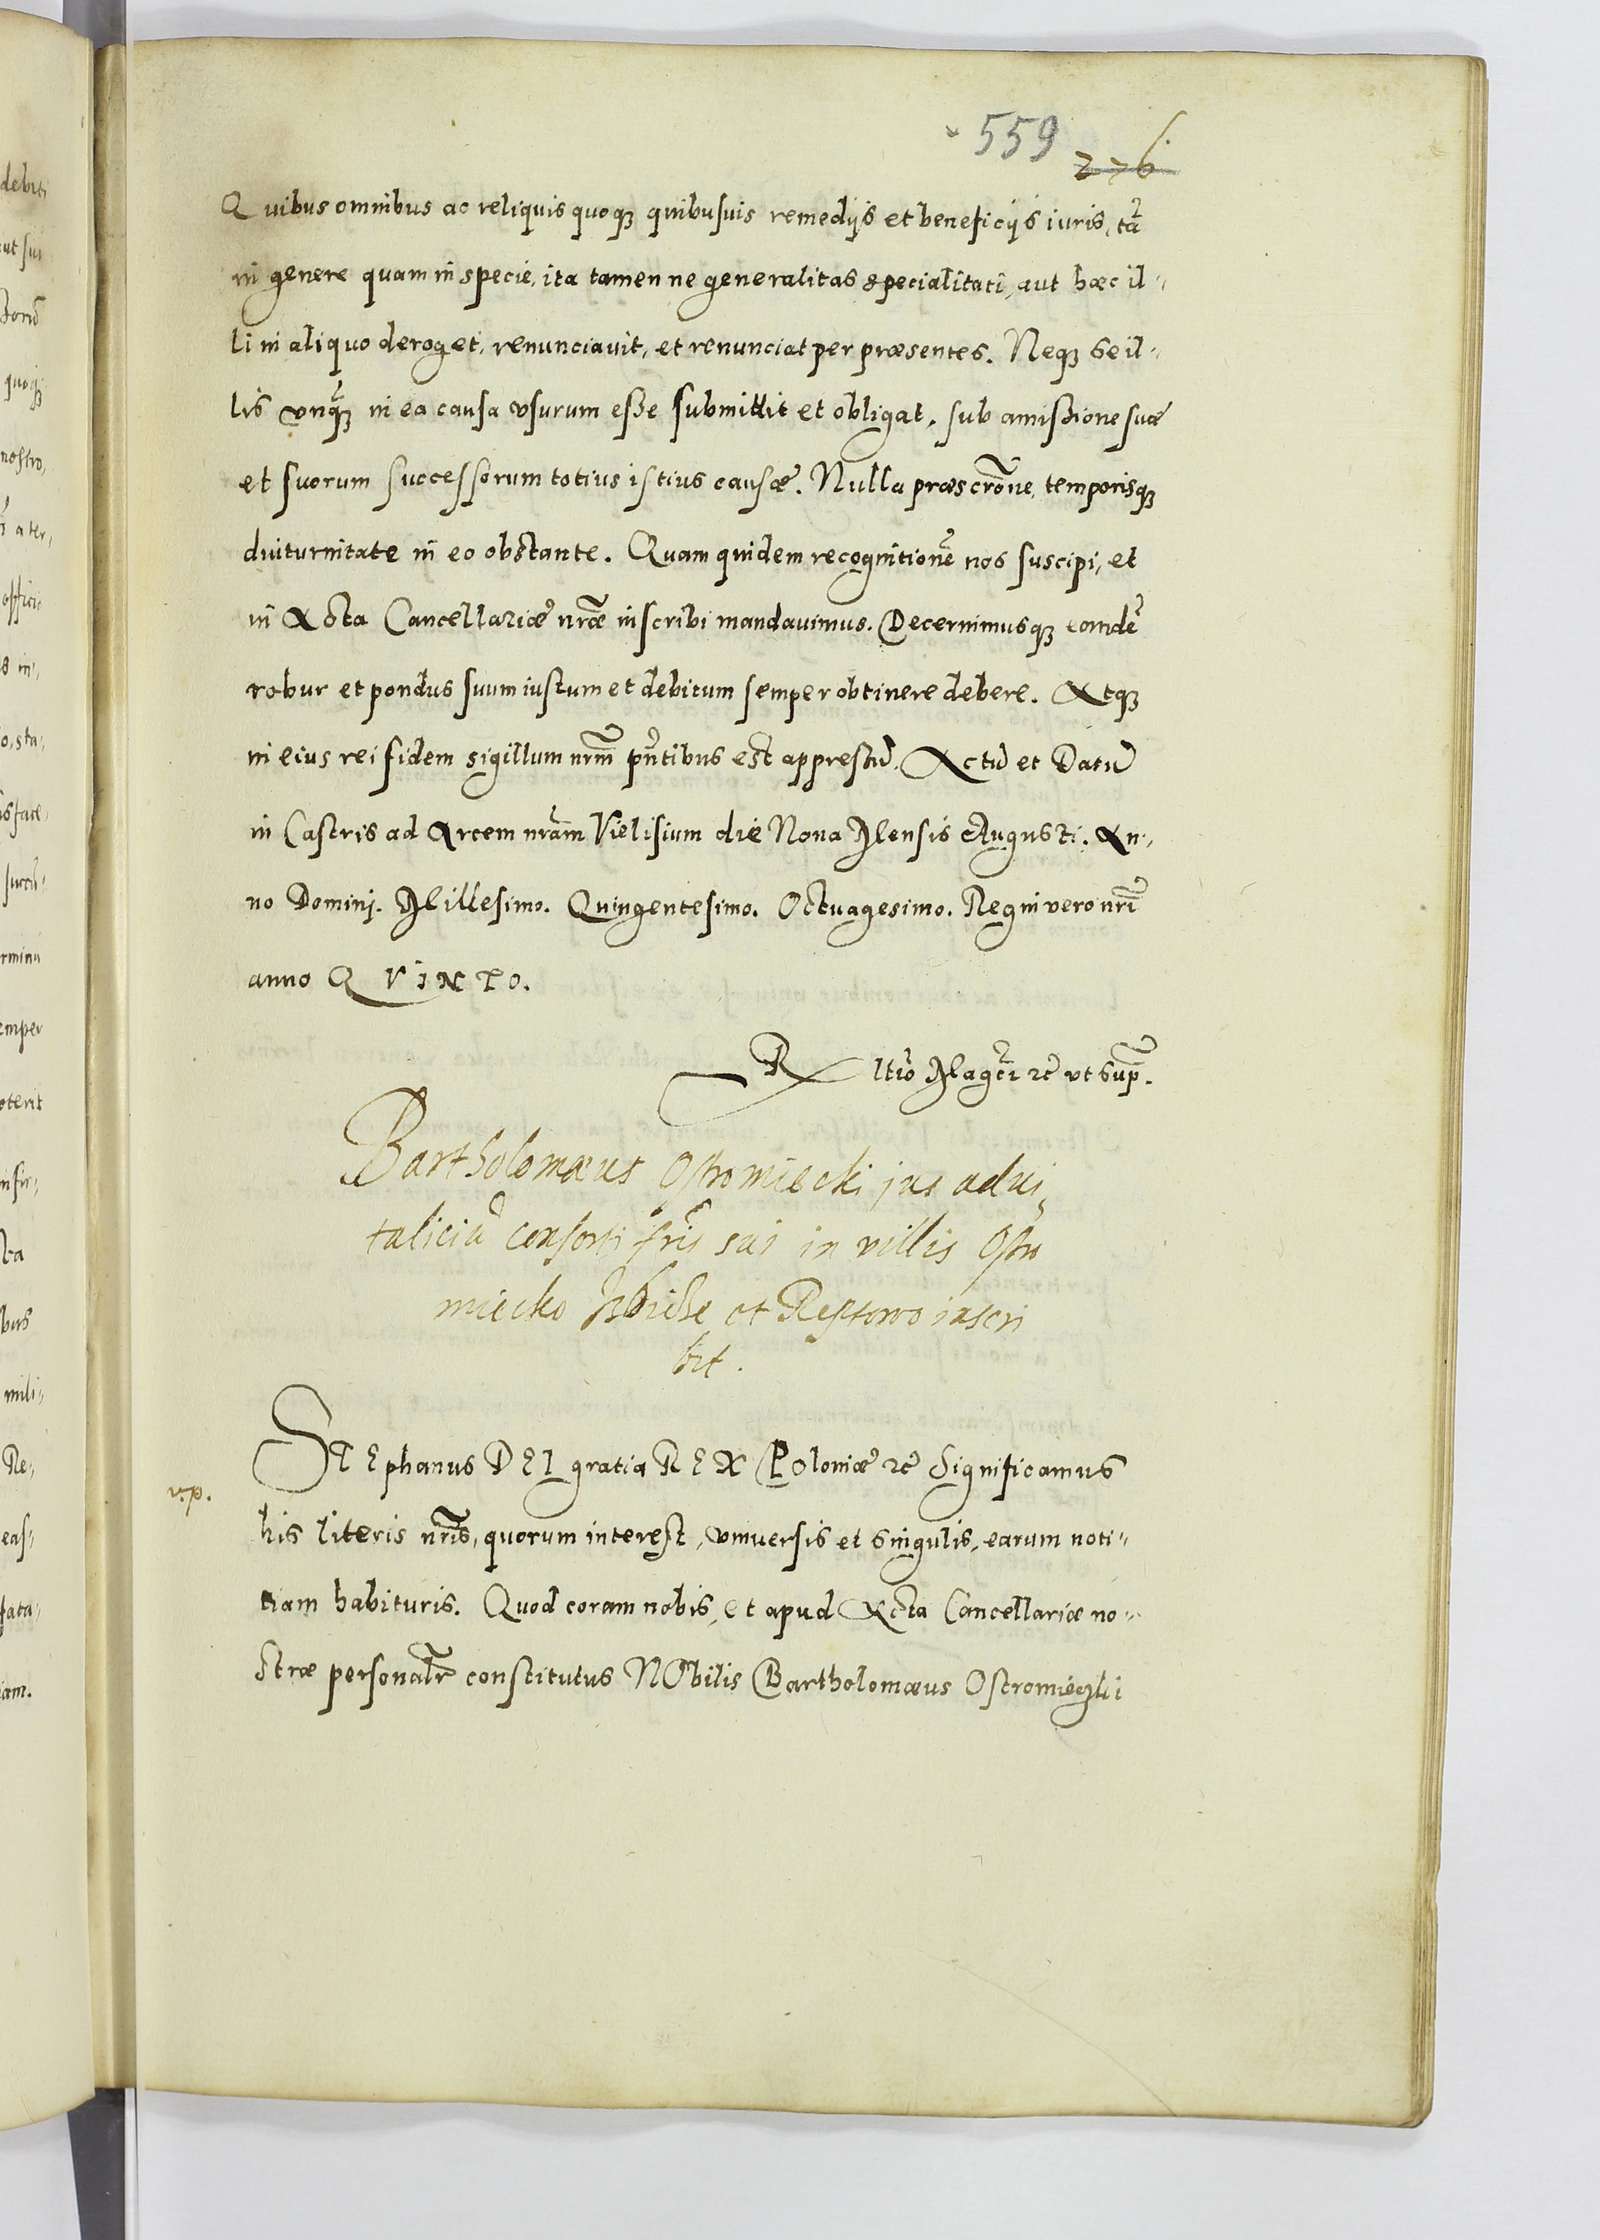 559
276
Quibus omnibus ac reliquis quoqꝫ quibusuis remedijs et beneficijs iuris, tā
in genere quam in specie, ita tamen ne generalitas specialitati, aut hæc il-
li in aliquo deroget, renunciauit, et renunciat per præsentes. Neqꝫ se il-
lis vnq̃ꝫ in ea causa vsurum esse submittit et obligat, sub amissione suæ
et suorum successorum totius istius causæ. Nulla præscrõne, temporisqꝫ
diuturnitate in eo obstante. Quam quidem recognitionẽ nos suscipi, et
in Acta Cancellariæ nr̃æ inscribi mandauimus. Decernimusqꝫ eamdẽ
robur et pondus suum iustum et debitum semper obtinere debere. Atqꝫ
in eius rei fidem sigillum nr̃m pñtibus est appressũ. Actũ et Datũ
in Castris ad Arcem nr̃am Vielisium die Nona Mensis Augusti. An-
no Dominj. Millesimo. Quingentesimo. Octuagesimo. Regni vero nr̃i
anno QVINTO.
Rltio Magci ꝛc̃ vt sup̃.
Bartholomæus Ostromiecki jus adui-
taliciũ consorti fr̃is sui in villis Ostro
miecko et Reptowo inscri
bit.
v.p.
STEphanus DEI gratia REX Poloniæ ꝛc̃ Significamus
his literis nr̃is, quorum interest, vniuersis et singulis, earum noti-
tiam habituris. Quod coram nobis, et apud Acta Cancellariæ no-
stræ personalr̃ constitutus NObilis Bartholomæus Ostromięczki